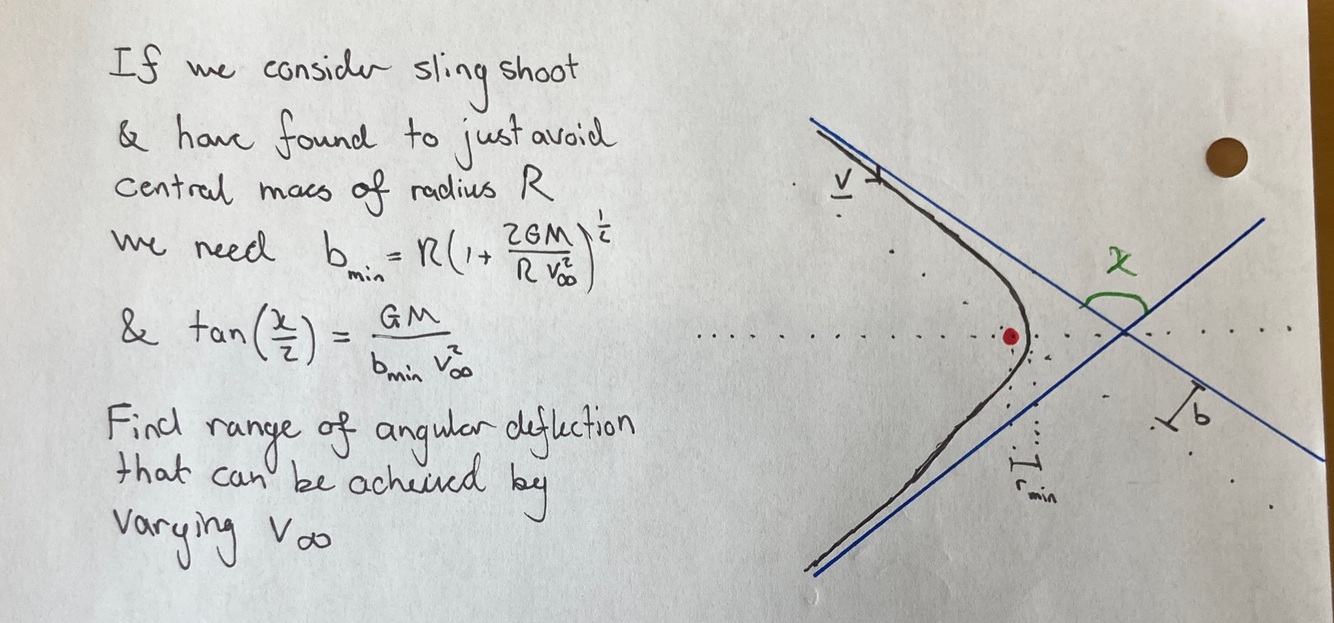 If we consider sling shoot
& have found to just avoid
central mass of radius R
we need b_min = R(1 + 2GM / R v∞²)^1/2
& tan(χ/2) = GM / b_min v∞²
Find range of angular deflection
that can be acheived by
varying v∞
v
χ
b
r_min